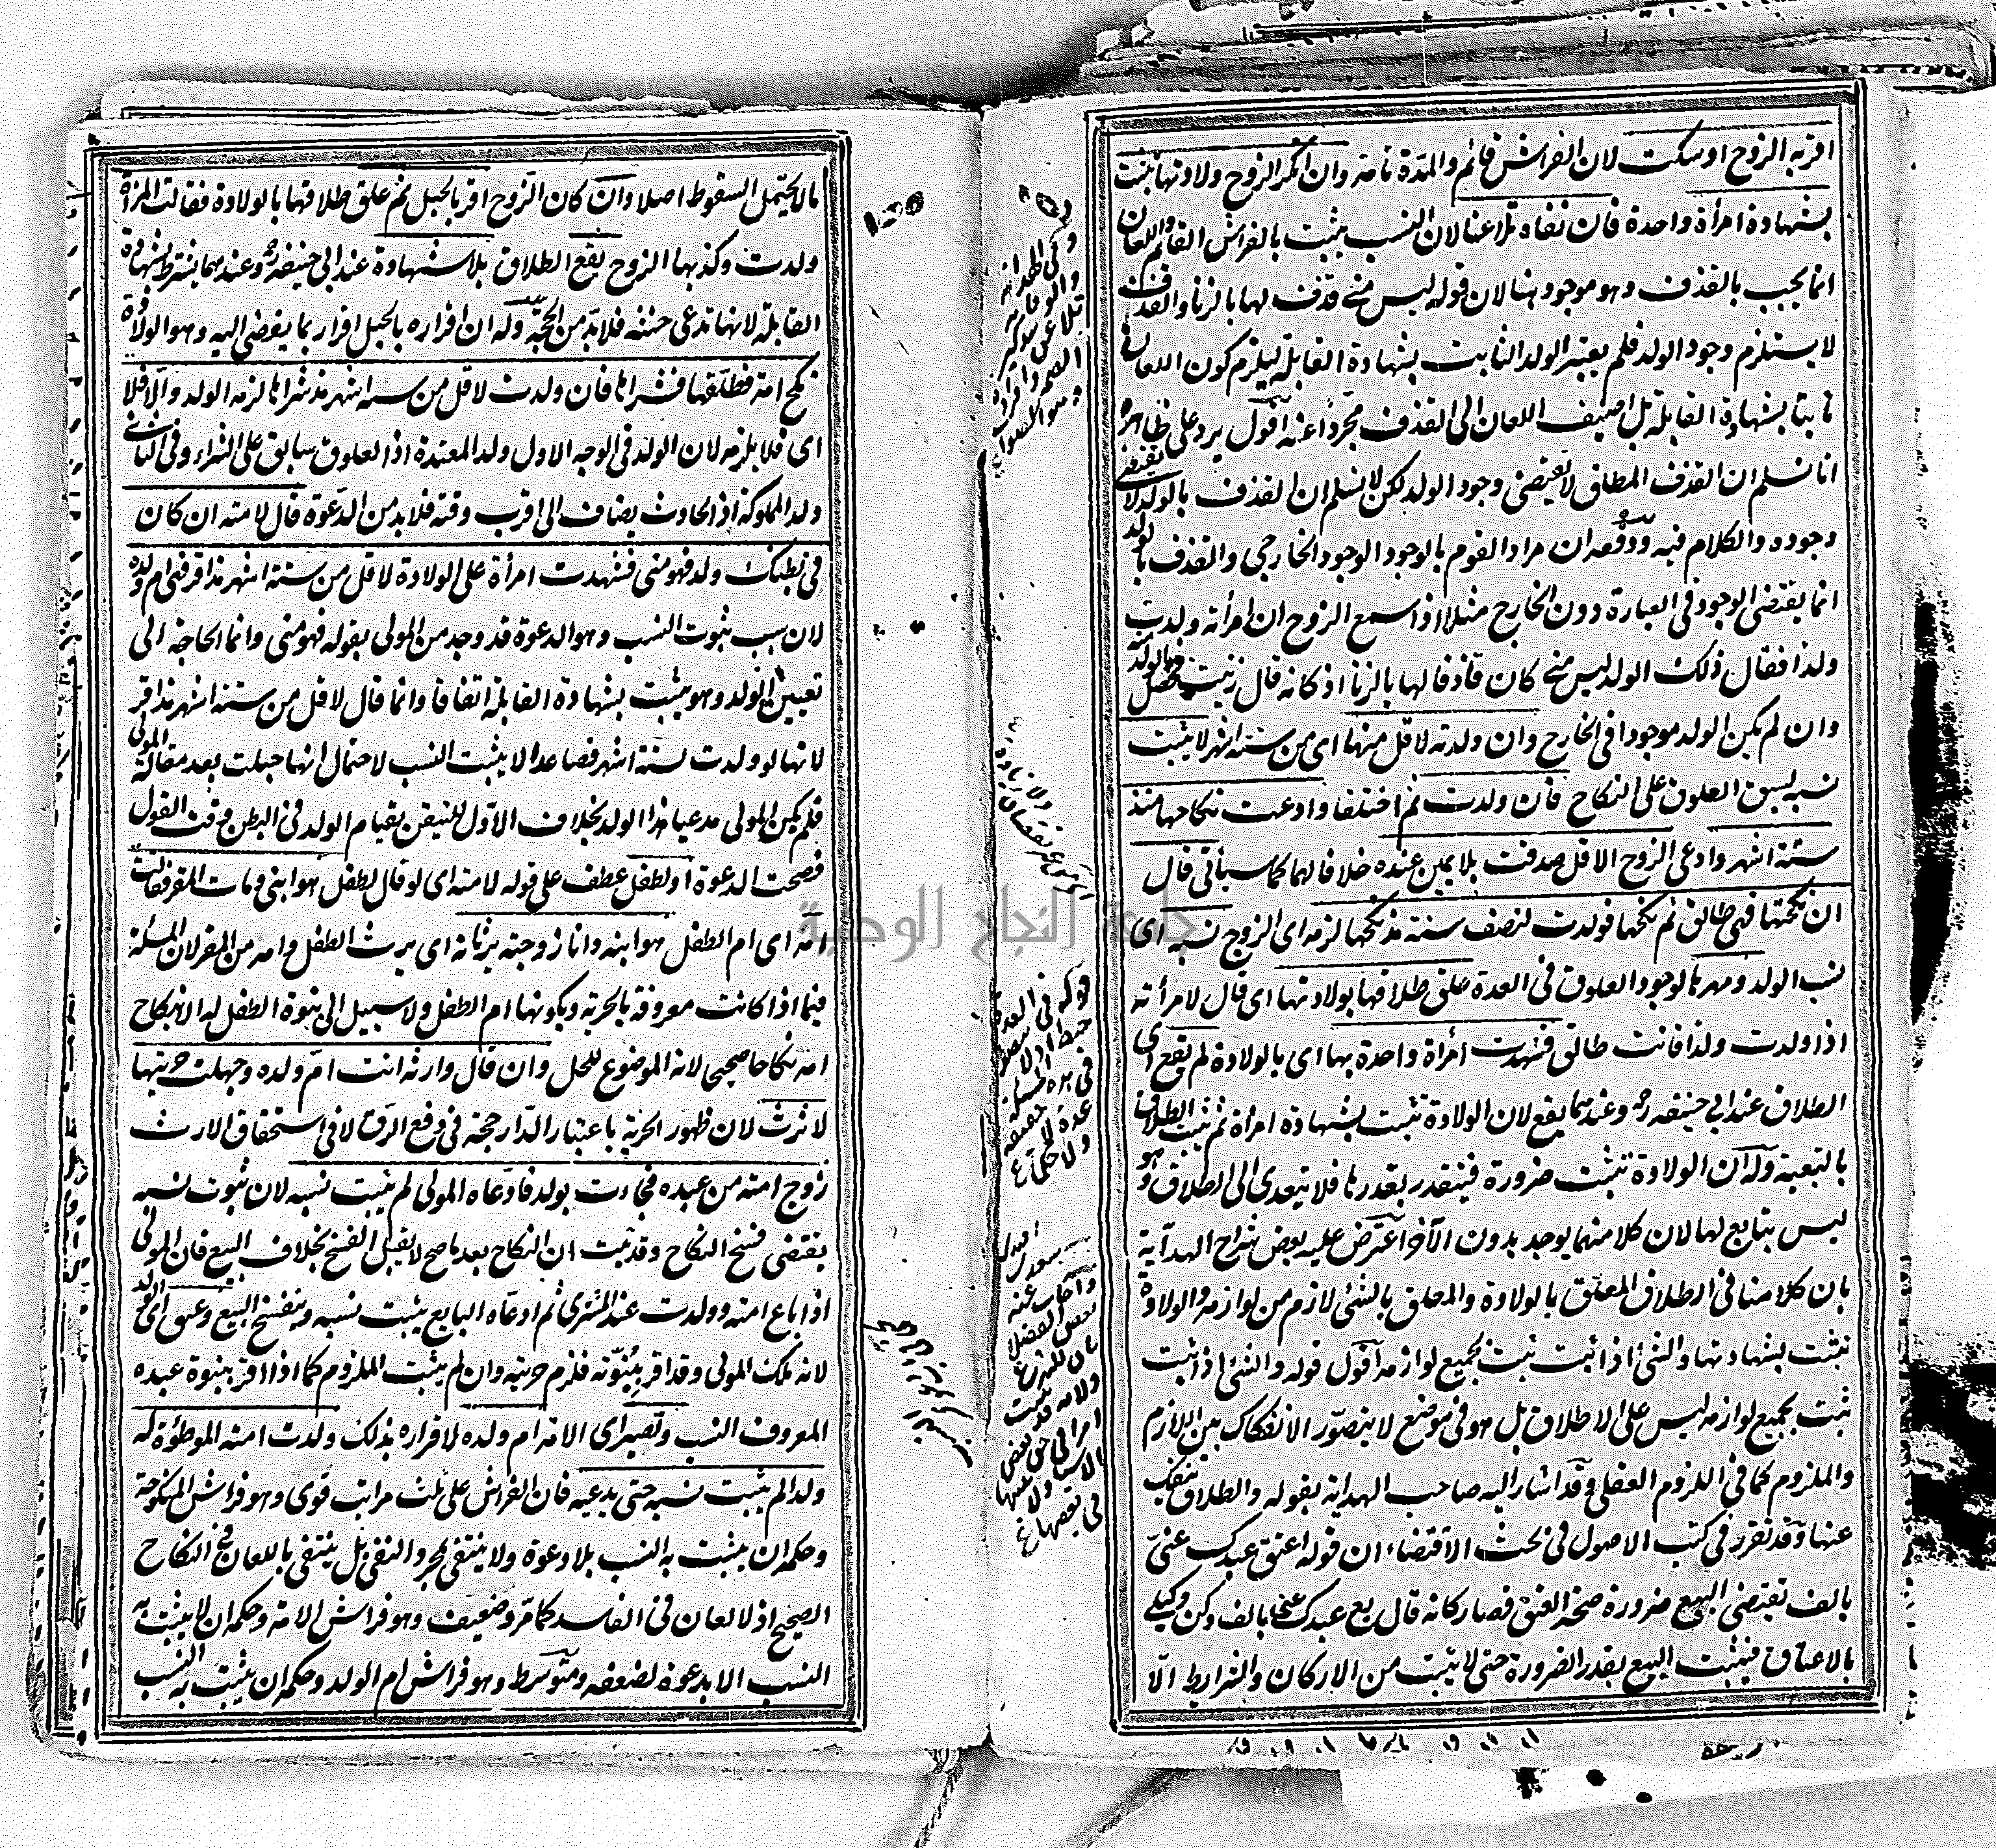 اقر به الزوج او سكت لان الفراش قائم والمدة تامة وان انكر الزوج ولادتها يثبت
بشهادة امرأة واحدة فان نفاه تلاعنا لان النسب يثبت بالفراش القائم واللعان
انما يجب بالقذف وهو موجود هنا لان قوله ليس مني قذف لها بالزنا والقذف
لا يستلزم وجود الولد فلم يعتبر الولد الثابت بشهادة القابلة ليلزم كون اللعان
ثابتا بشهادة القابلة بل اضيف اللعان الى القذف مجردا عنه اقول يرد على ظاهره
انا نسلم ان القذف المطلق لا يقتضي وجود الولد لكن لا نسلم ان القذف بالولد لا يقتضي
وجوده والكلام فيه ودفعه ان مراد القوم بالوجود الوجود الخارجي والقذف بالولد
انما يقتضي الوجود في العبارة دون الخارج مثلا اذا سمع الزوج ان امرأته ولدت
ولدا فقال ذلك الولد ليس مني كان قاذفا لها بالزنا اذ كانه قال زنيت فحصل منه الولد
وان لم يكن الولد موجودا في الخارج وان ولدته لاقل منها اى من ستة اشهر لا يثبت
نسبه لسبق العلوق على النكاح فان ولدت ثم اختلفا وادعت نكاحها منذ
ستة اشهر وادعى الزوج الاقل صدقت بلا يمين عنده خلافا لهما كما سيأتي قال
ان نكحتها فهى طالق ثم نكحها فولدت لنصف سنة مذ نكحها لزمه اى الزوج نسبه اى
نسب الولد ومهرها لوجود العلوق في العدة علق طلاقها بولادتها اى قال لامرأته
اذا ولدت ولدا فانت طالق فشهدت امرأة واحدة بها اى بالولادة لم تقع اى
الطلاق عند ابي حنيفة رح وعندهما يقع لان الولادة تثبت بشهادة امرأة ثم يثبت الطلاق
بالتبعية وله ان الولادة تثبت ضرورة فيتقدر بقدرها فلا يتعدى الى الطلاق وهو
ليس بتابع لها لان كلا منهما يوجد بدون الآخر اعترض عليه بعض شراح الهداية
بان كلامنا في الطلاق المعلق بالولادة والمعلق بالشئ لازم من لوازمه والولادة
تثبت بشهادتها والشئ اذا ثبت ثبت بجميع لوازمه اقول قوله والشئ اذا ثبت
ثبت بجميع لوازمه ليس على الاطلاق بل هو في موضع لا يتصور الانفكاك بين اللازم
والملزوم كما في اللزوم العقلي وقد اشار اليه صاحب الهداية بقوله والطلاق ينفك
عنها وقد تقرر في كتب الاصول في بحث الاقتضاء ان قوله اعتق عبدك عنى
بالف تقتضي البيع ضرورة صحة العتق فصار كانه قال بع عبدك عنى بالف وكن وكيلي
بالاعتاق فيثبت البيع بقدر الضرورة حتى لا يثبت من الاركان والشرايط الا
ما لا يحتمل السقوط اصلا وان كان الزوج اقر بالحبل ثم علق طلاقها بالولادة فقالت المرأة
ولدت وكذبها الزوج يقع الطلاق بلا شهادة عند ابي حنيفة رح وعندهما يشترط شهادة
القابلة لانها تدعى حنثه فلا بد من الحجة وله ان اقراره بالحبل اقرار بما يفضى اليه وهو الولادة
نكح امة فطلقها فشراها فان ولدت لاقل من ستة اشهر مذ شراها لزمه الولد والا فلا
اى فلا يلزمه لان الولد في الوجه الاول ولد المعتدة اذ العلوق سابق على الشراء وفي الثاني
ولد المملوكة اذ الحادث يضاف الى اقرب وقته فلا بد من الدعوة قال لامته ان كان
في بطنك ولد فهو منى فشهدت امرأة على الولادة لاقل من ستة اشهر مذ اقر فهى ام ولده
لان سبب ثبوت النسب وهو الدعوة قد وجد من المولى بقوله فهو منى وانما الحاجة الى
تعيين الولد وهو يثبت بشهادة القابلة اتفاقا وانما قال لاقل من ستة اشهر مذ اقر
لانها لو ولدت لستة اشهر فصاعدا لا يثبت النسب لاحتمال انها حبلت بعد مقالة المولى
فلم يكن المولى مدعيا هذا الولد بخلاف الاول للتيقن بقيام الولد في البطن وقت القول
فصحت الدعوة او لطفل عطف على قوله لامته اى لو قال لطفل هو ابنى ومات المقر فقالت
امه اى ام الطفل هو ابنه وانا زوجته يرثانه اى يرث الطفل وامه من المقر لان المسئلة
فيما اذا كانت معروفة بالحرية وبكونها ام الطفل ولا سبيل الى بنوة الطفل له الا بنكاح
امه نكاحا صحيحا لانه الموضوع للحل وان قال وارثه انت ام ولده وجهلت حريتها
لا ترث لان ظهور الحرية باعتبار الدار حجة في دفع الرق لا في استحقاق الارث
زوج امته من عبده فجاءت بولد فادعاه المولى لم يثبت نسبه لان ثبوت نسبه
يقتضى فسخ النكاح وقد ثبت ان النكاح بعد ما صح لا يقبل الفسخ بخلاف البيع فان المولى
اذا باع امته وولدت عند المشترى ثم ادعاه البايع يثبت نسبه وينفسخ البيع وعتق اى الولد
لانه ملك المولى وقد اقر ببنوته فلزم حريته وان لم يثبت الملزوم كما اذا اقر ببنوة عبده
المعروف النسب وتصير اى الامة ام ولده لاقراره بذلك ولدت امته الموطؤة له
ولدا لم يثبت نسبه حتى يدعيه فان الفراش على ثلث مراتب قوى وهو فراش المنكوحة
وحكمه ان يثبت به النسب بلا دعوة ولا ينتفى بمجرد النفى بل ينتفى باللعان في النكاح
الصحيح اذ لا لعان في الفاسد كما مر وضعيف وهو فراش الامة وحكمه ان لا يثبت به
النسب الا بدعوة لضعفه ومتوسط وهو فراش ام الولد وحكمه ان يثبت به النسب
جامعة النجاح الوطنية